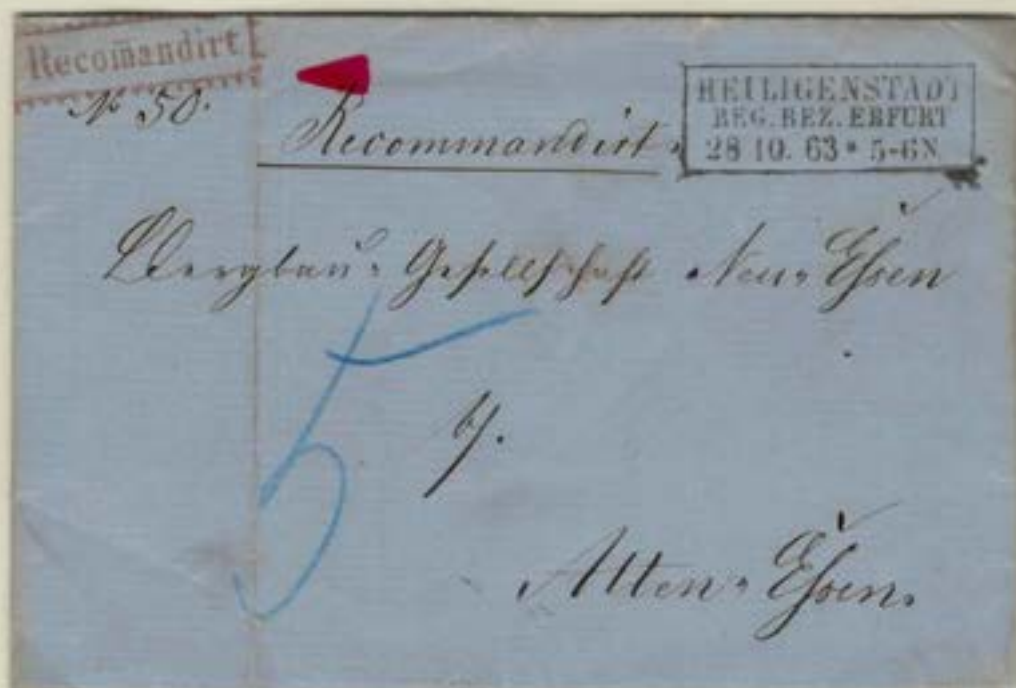 Recom̄andirt
№ 50.
Recommandirt.
HEILIGENSTADT
REG. BEZ. ERFURT
28 10. 63 * 5-6N
Bergbau- Gesellschaft Neu- Essen
5
Alten- Essen.